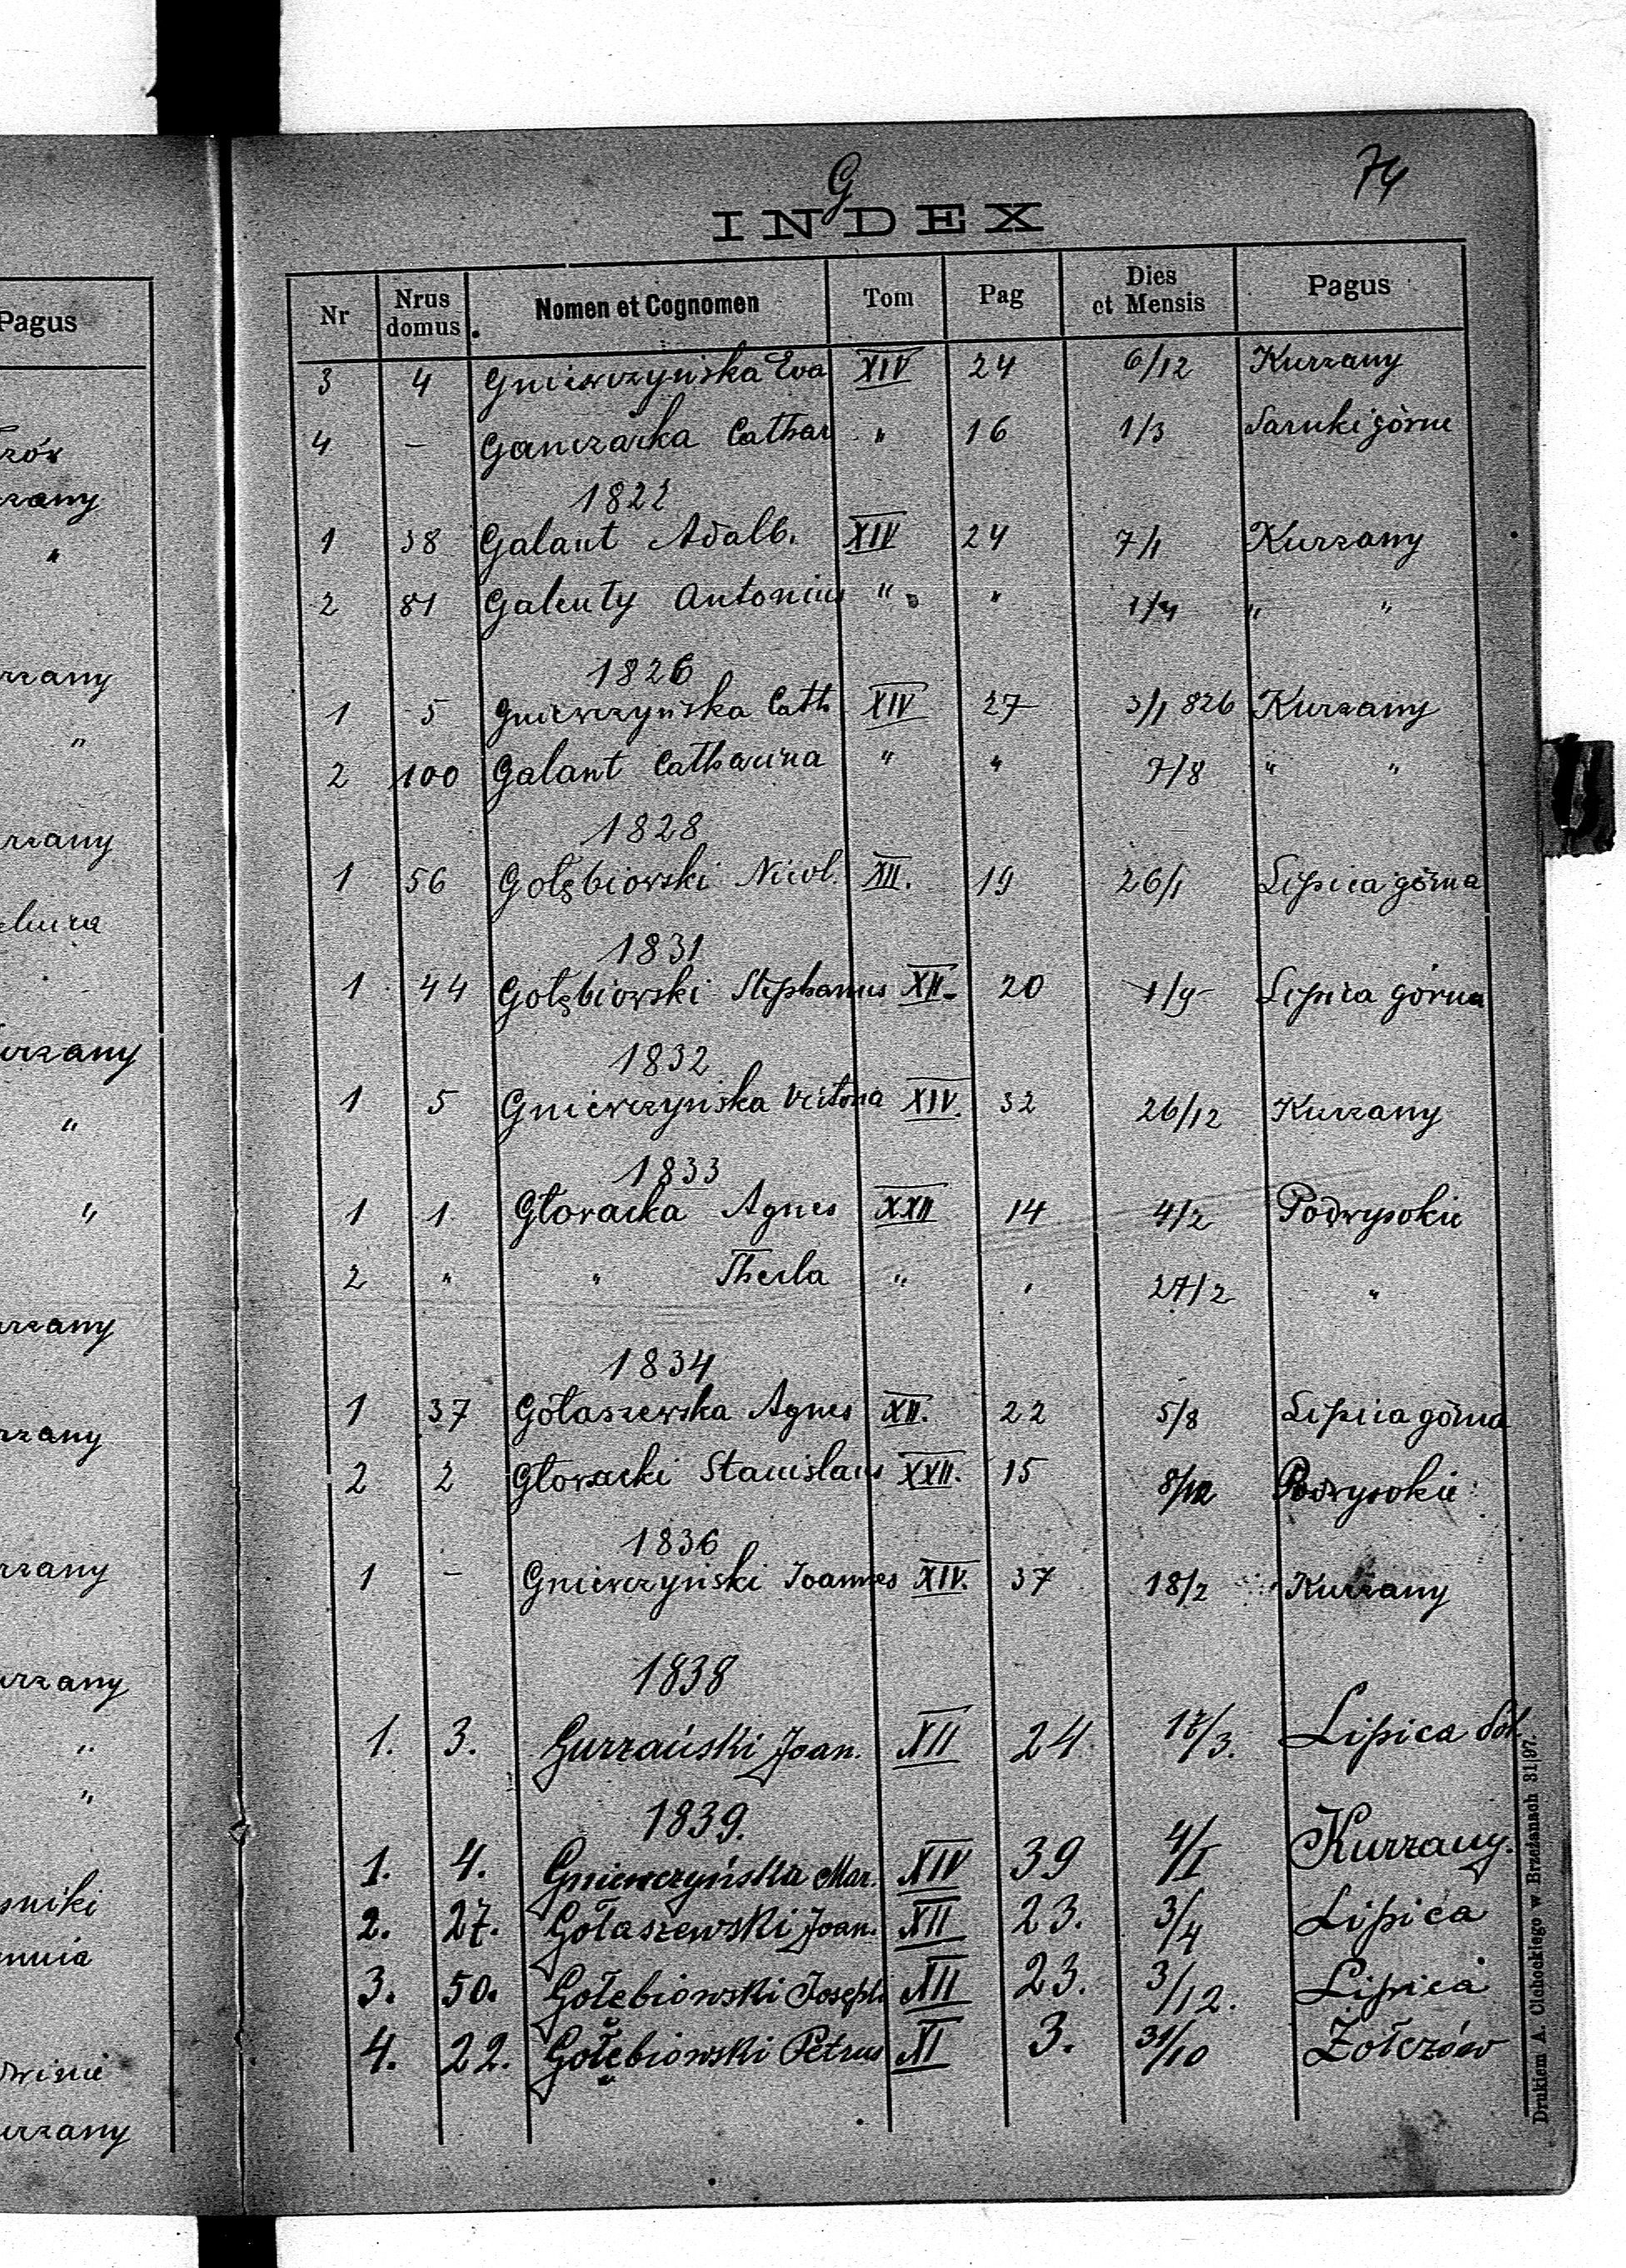 Pagus
zów
zany
"
rzany
"
rzany
rzany
"
"
rzany
rzany
rzany
rzany
"
"
sniki
mnia
rzany
G
74
INDEX
Nr Nrus domus Nomen et Cognomen Tom Pag Dies et Mensis Pagus
3 4 Gniewczyńska Eva XIV 24 6/12 Kurzany
4 – Ganczarka Cathar " 16 1/3 Sarnki górne
1822
1 38 Galant Adalb. XIV 24 7/1 Kurzany
2 81 Galenty Antonius " " 1/4 " "
1826
1 5 Gniewczyńska Cath XIV 27 3/1 826 Kurzany
2 100 Galant Catharina " " 7/8 " "
1828
1 56 Gołębiowski Nicol. XII. 19 26/1 Lipica górna
1831
1 44 Gołębiowski Stephanus XII. 20 1/9 Lipica górna
1832
1 5 Gniewczyńska Victoria XIV. 32 26/12 Kurzany
1833
1 1 Głowacka Agnes XXII 14 4/2 Podwysokie
2 " " Thecla " " 27/2 "
1834
1 37 Gołaszewska Agnes XII. 22 5/8 Lipica górna
2 2 Głowacki Stanislaus XXII. 15 8/12 Podwysokie
1836
1 – Gniewczyński Joannes XIV. 37 18/2 Kurzany
1838
1. 3. Gurzański Joan. XII 24 /3. Lipica dol.
1839.
1. 4. Gniewczyńska Mar. XIV 39 4/I Kurzany.
2. 27. Gołaszewski Joan. XII 23. 3/4 Lipica
3. 50. Gołębiowski Joseph XII 23. 3/12. Lipica
4. 22. Gołębiowski Petrus XI 3. 31/10 Żołczów
Drukiem A. Cichockiego w Brzeżanach 31|97.